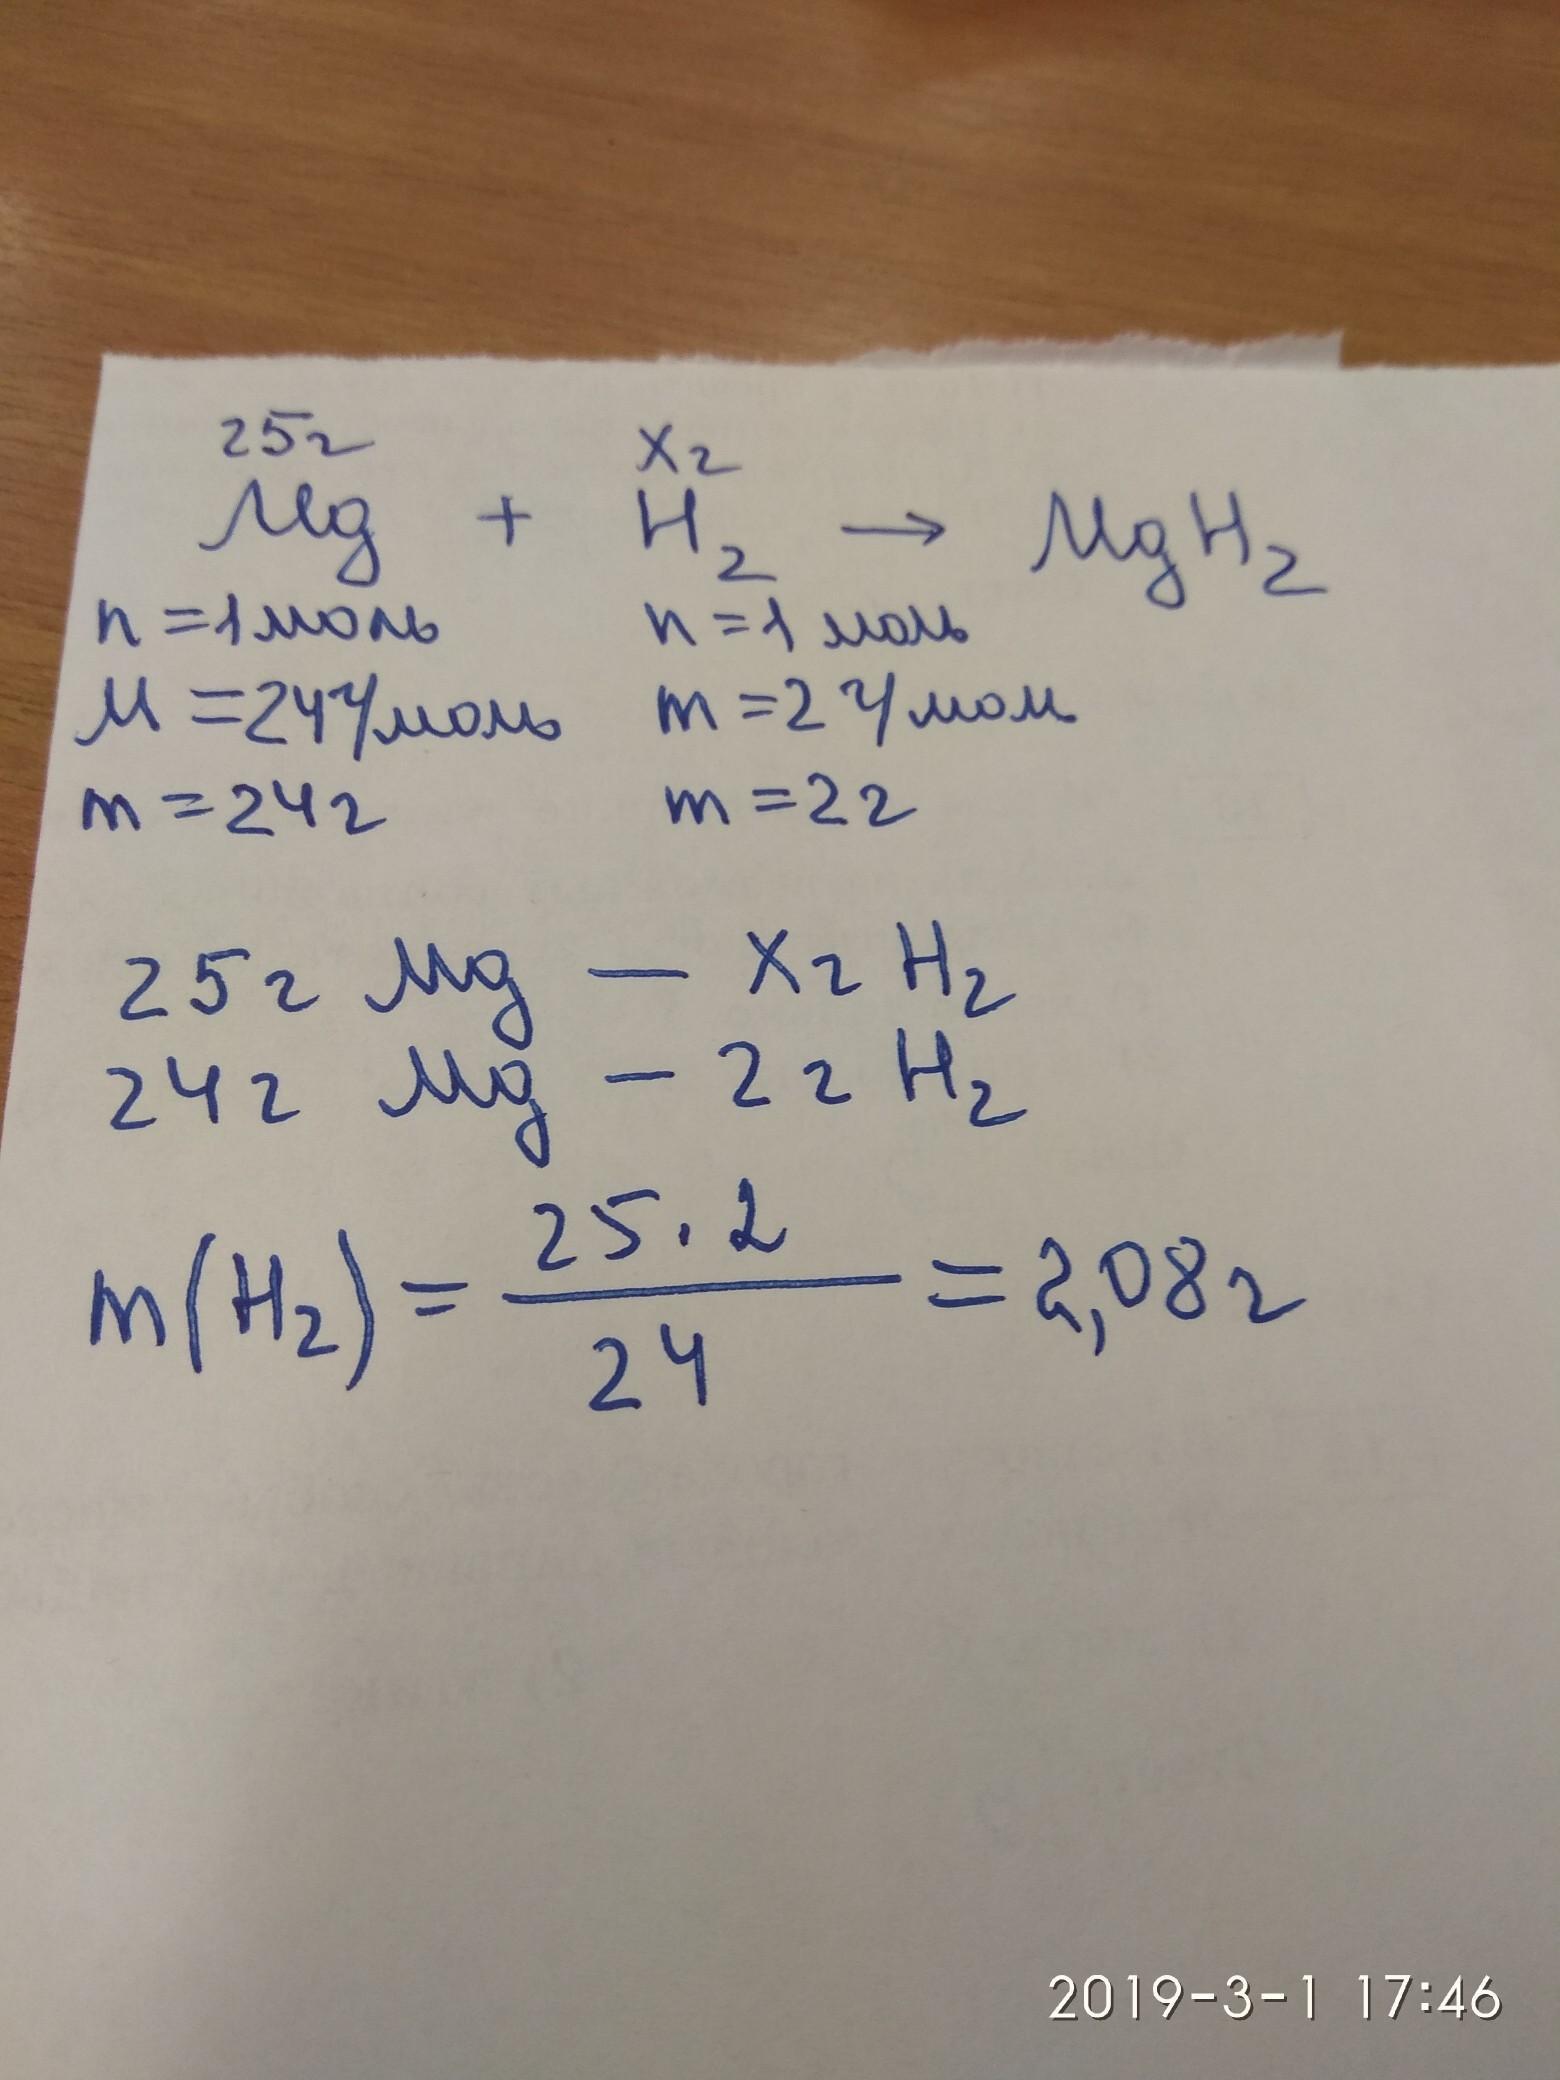 25г        xг
Mg + H₂ → MgH₂
n = 1 моль        n = 1 моль
M = 24 г/моль        m = 2 г/мол
m = 24 г        m = 2 г
25 г Mg — x г H₂
24 г Mg — 2 г H₂
m(H₂) = 25·2/24 = 2,08 г
2019-3-1 17:46